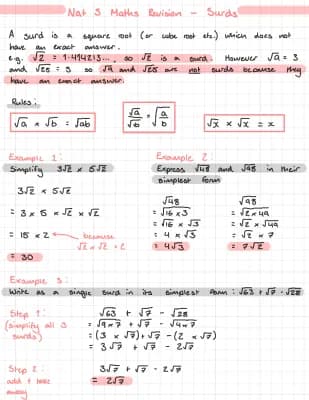 Nat 5 Maths Revision - Surds
A surd is a square root (or cube root etc.) which does not
have an exact answer.
e.g. √2 = 1.414213..., so √2 is a surd. However √9 = 3
and √25 = 5 so √9 and √25 are not surds because they
have an exact answer.
Rules:
√a × √b = √ab
√a/√b = √a/b
√x × √x = x
Example 1:
Simplify 3√2 × 5√2
3√2 × 5√2
= 3 × 5 × √2 × √2
= 15 × 2 ← because
√2 × √2 = 2
= 30
Example 2:
Express √48 and √98 in their
simplest form
√48
= √16 × 3
= √16 × √3
= 4 × √3
= 4√3
√98
= √2 × 49
= √2 × √49
= √2 × 7
= 7√2
Example 3:
Write as a single surd in its simplest form: √63 + √7 - √28
Step 1:
(simplify all 3
surds)
√63 + √7 - √28
= √9×7 + √7 - √4×7
= (3 × √7) + √7 - (2 × √7)
= 3√7 + √7 - 2√7
Step 2:
add + take
away
3√7 + √7 - 2√7
= 2√7